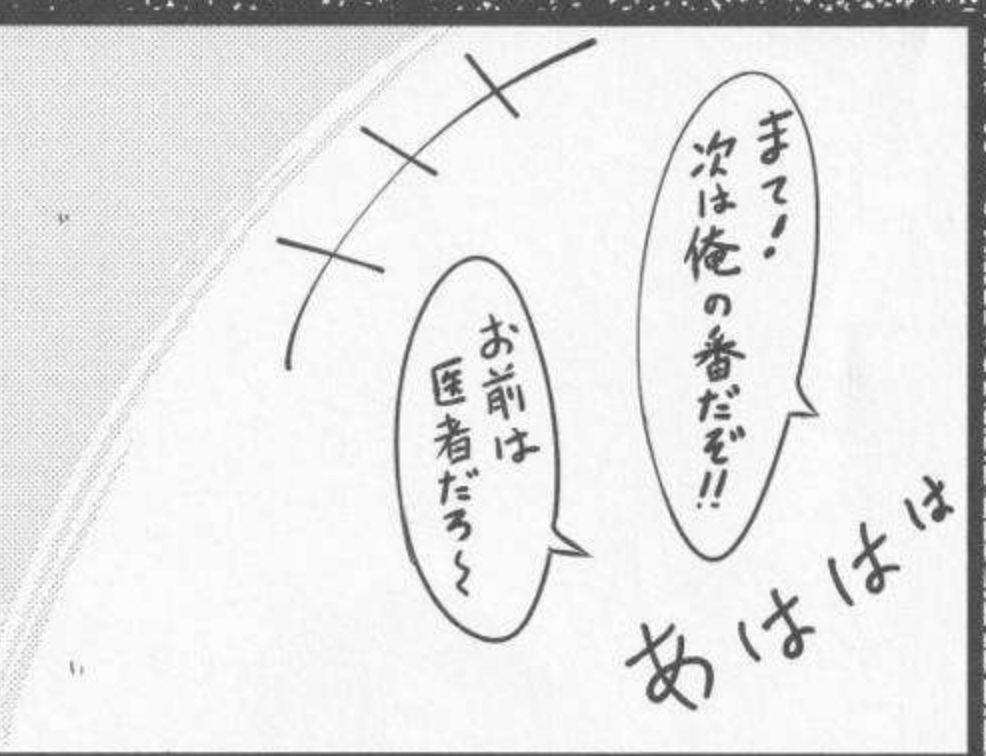 まて!
次は俺の番だぞ!!
お前は
医者だろ〜
あははは